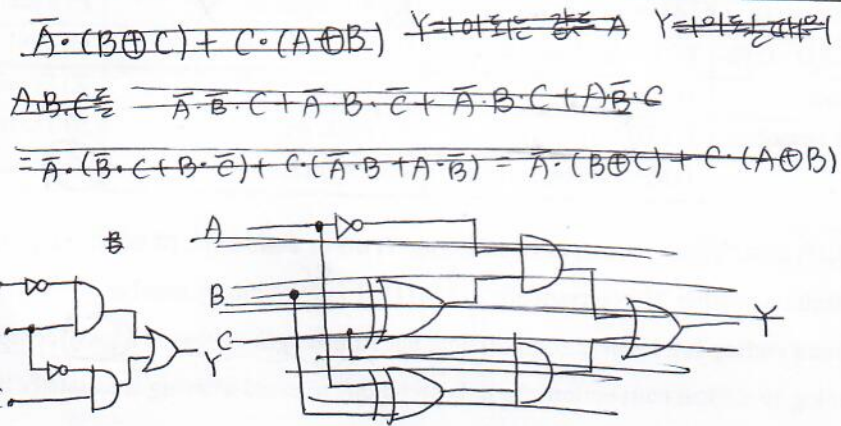 Ā·(B⊕C)+C·(A⊕B) Y=1이 되는 값은 A Y=1이 될 때의
A.B.C를 Ā·B̄·C+Ā·B·C̄+Ā·B·C+A·B̄·C
=Ā·(B̄·C+B·C̄)+C·(Ā·B+A·B̄)=Ā·(B⊕C)+C·(A⊕B)
B A
B
C
Y
Y